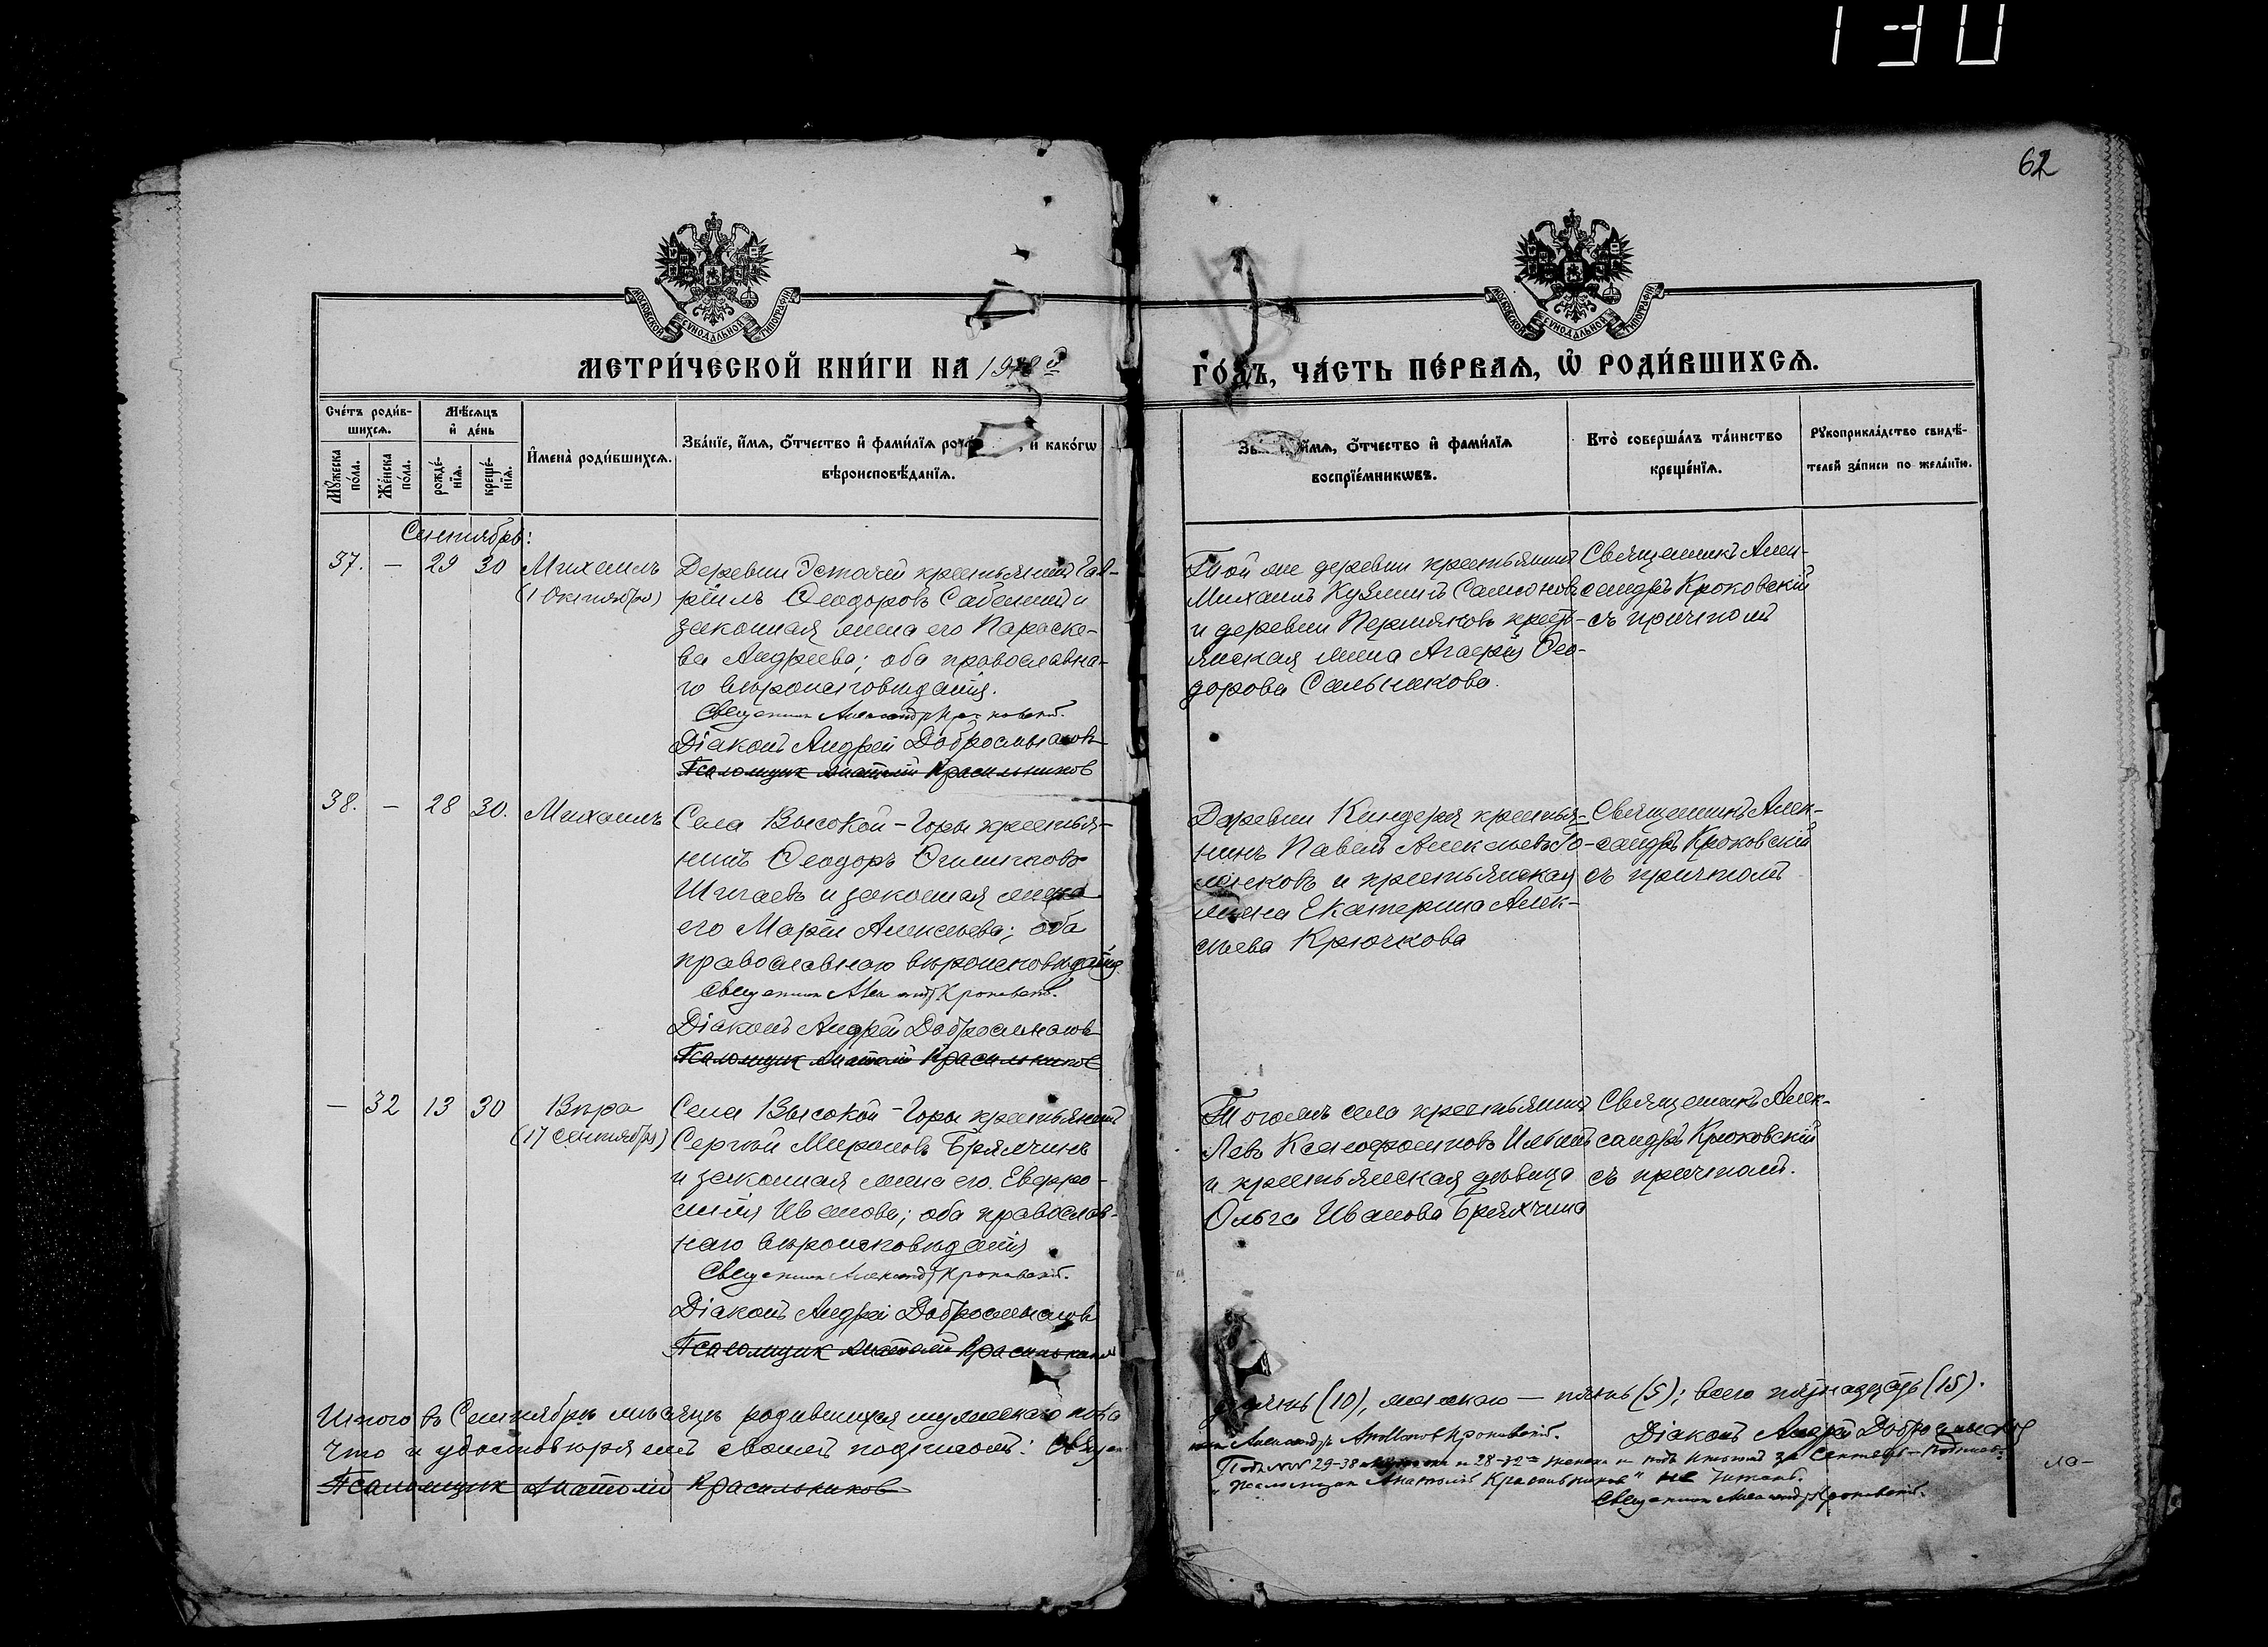 130
62
МОСКОВСКОЙ СѴНОДАЛЬНОЙ ТИПОГРАФІИ
МОСКОВСКОЙ СѴНОДАЛЬНОЙ ТИПОГРАФІИ
МЕТРИ́ЧЕСКОЙ КНИ́ГИ НА
ГО́ДЪ, ЧА́СТЬ ПЕ́РВАѦ, Ѡ РОДИ́ВШИХСѦ.
Сче́тъ роди́в-
шихсѧ.
Мѣ́сѧцъ
и де́нь
Мꙋ́жеска по́ла.
Же́нска по́ла.
рожде́-
нїѧ.
креще́-
нїѧ.
Имена̀ роди́вшихсѧ.
Зва́нїе, и́мѧ, ѻ́тчество и фами́лїѧ , и како́гѡ
вѣроисповѣ́данїѧ.
и́мѧ, ѻ́тчество и фами́лїѧ
воспрїе́мникѡвъ.
Кто̀ соверша́лъ та́инство
креще́нїѧ.
Рꙋкоприкла́дство свидѣ́-
телей за́писи по жела́нїю.
Сентябрь:
37. — 29 30 Михаилъ
(1 Октября)
Деревни крестьянинъ Гав-
рiилъ Ѳеодоровъ и
законная жена его Параске-
ва Андреева; оба православна-
го вѣроисповѣданiя.
Священник Александр Кроковскiй.
Дiаконъ Андрей Добросмыслов
Псаломщик Анатолiй Красильников
Той же деревни крестьянинъ
Михаилъ Кузминъ Самсоновъ
и деревни Пермяковъ кресть-
янская жена Агаѳiя Ѳео-
дорова Сальникова.
Священникъ Алек-
сандръ Кроковскiй
съ причтомъ
38. — 28 30. Михаилъ
Села Высокой-Горы крестья-
нинъ Ѳеодоръ
Шигаевъ и законная жена
его Марiя Алексѣева; оба
православнаго вѣроисповѣданiя.
Священник Александр Кроковскiй.
Дiаконъ Андрей Добросмыслов
Псаломщик Анатолiй Красильников
Деревни Киндеря крестья-
нинъ Павелъ Алексѣевъ
и крестьянская
жена Екатерина Алек-
сѣева Крючкова
Священникъ Алек-
сандръ Кроковскiй
съ причтомъ
— 32 13 30 Вѣра
(17 Сентября)
Села Высокой-Горы крестьянинъ
Сергѣй Мироновъ Брялчинъ
и законная жена его Евфро-
синiя Иванова; оба православ-
наго вѣроисповѣданiя
Священник Александр Кроковскiй.
Дiаконъ Андрей Добросмыслов
Псаломщик Анатолiй Красильников
Того же села крестьянинъ
Левъ Ксенофонтовъ Ильинъ
и крестьянская дѣвица
Ольга Иванова
Священникъ Алек-
сандръ Кроковскiй
съ причтомъ.
Итого въ Сентябрѣ мѣсяцѣ родившихся мужскаго пола
(10), женскаго — пять (5); всего пятнадцать (15).
Что и удостовѣряемъ своимъ подписомъ: Священ
Александръ Кроковскiй. Дiаконъ Андрей Добросмыслов
Псаломщик Анатолiй Красильников
29-38 и 28-32 женска и подъ итогомъ за Сентябрь —
"Псаломщик Анатолiй Красильников" не читать.
Священник Александр Кроковскiй.